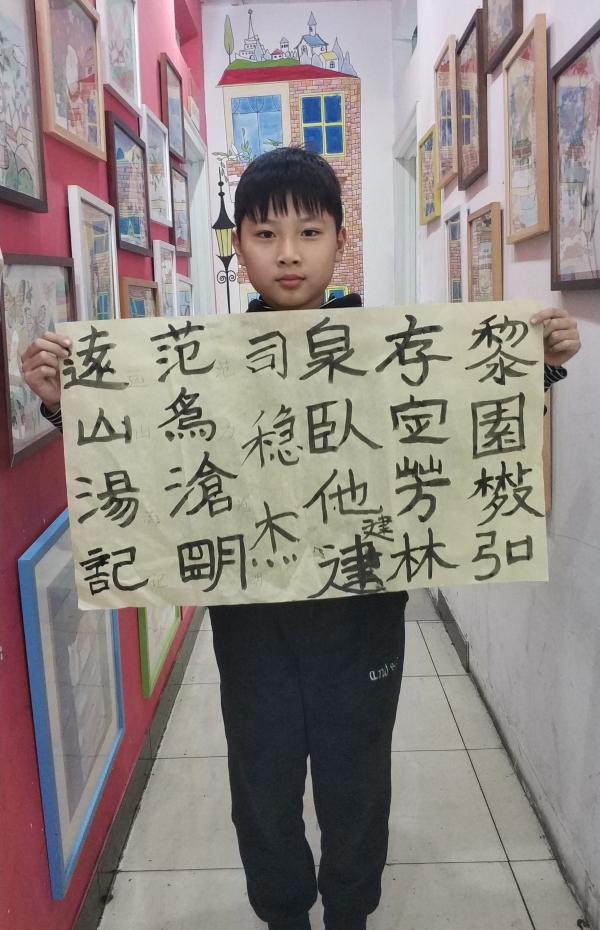 黎園弘
存定芳林
泉臥他建
建
司稳杰
范為滄明
遠山湯記